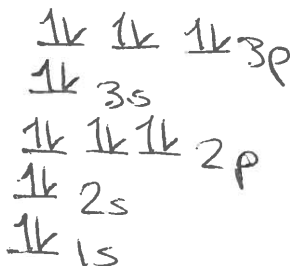 1L 1L 1L 3p
1L 3s
1L 1L 1L 2p
1L 2s
1L 1s